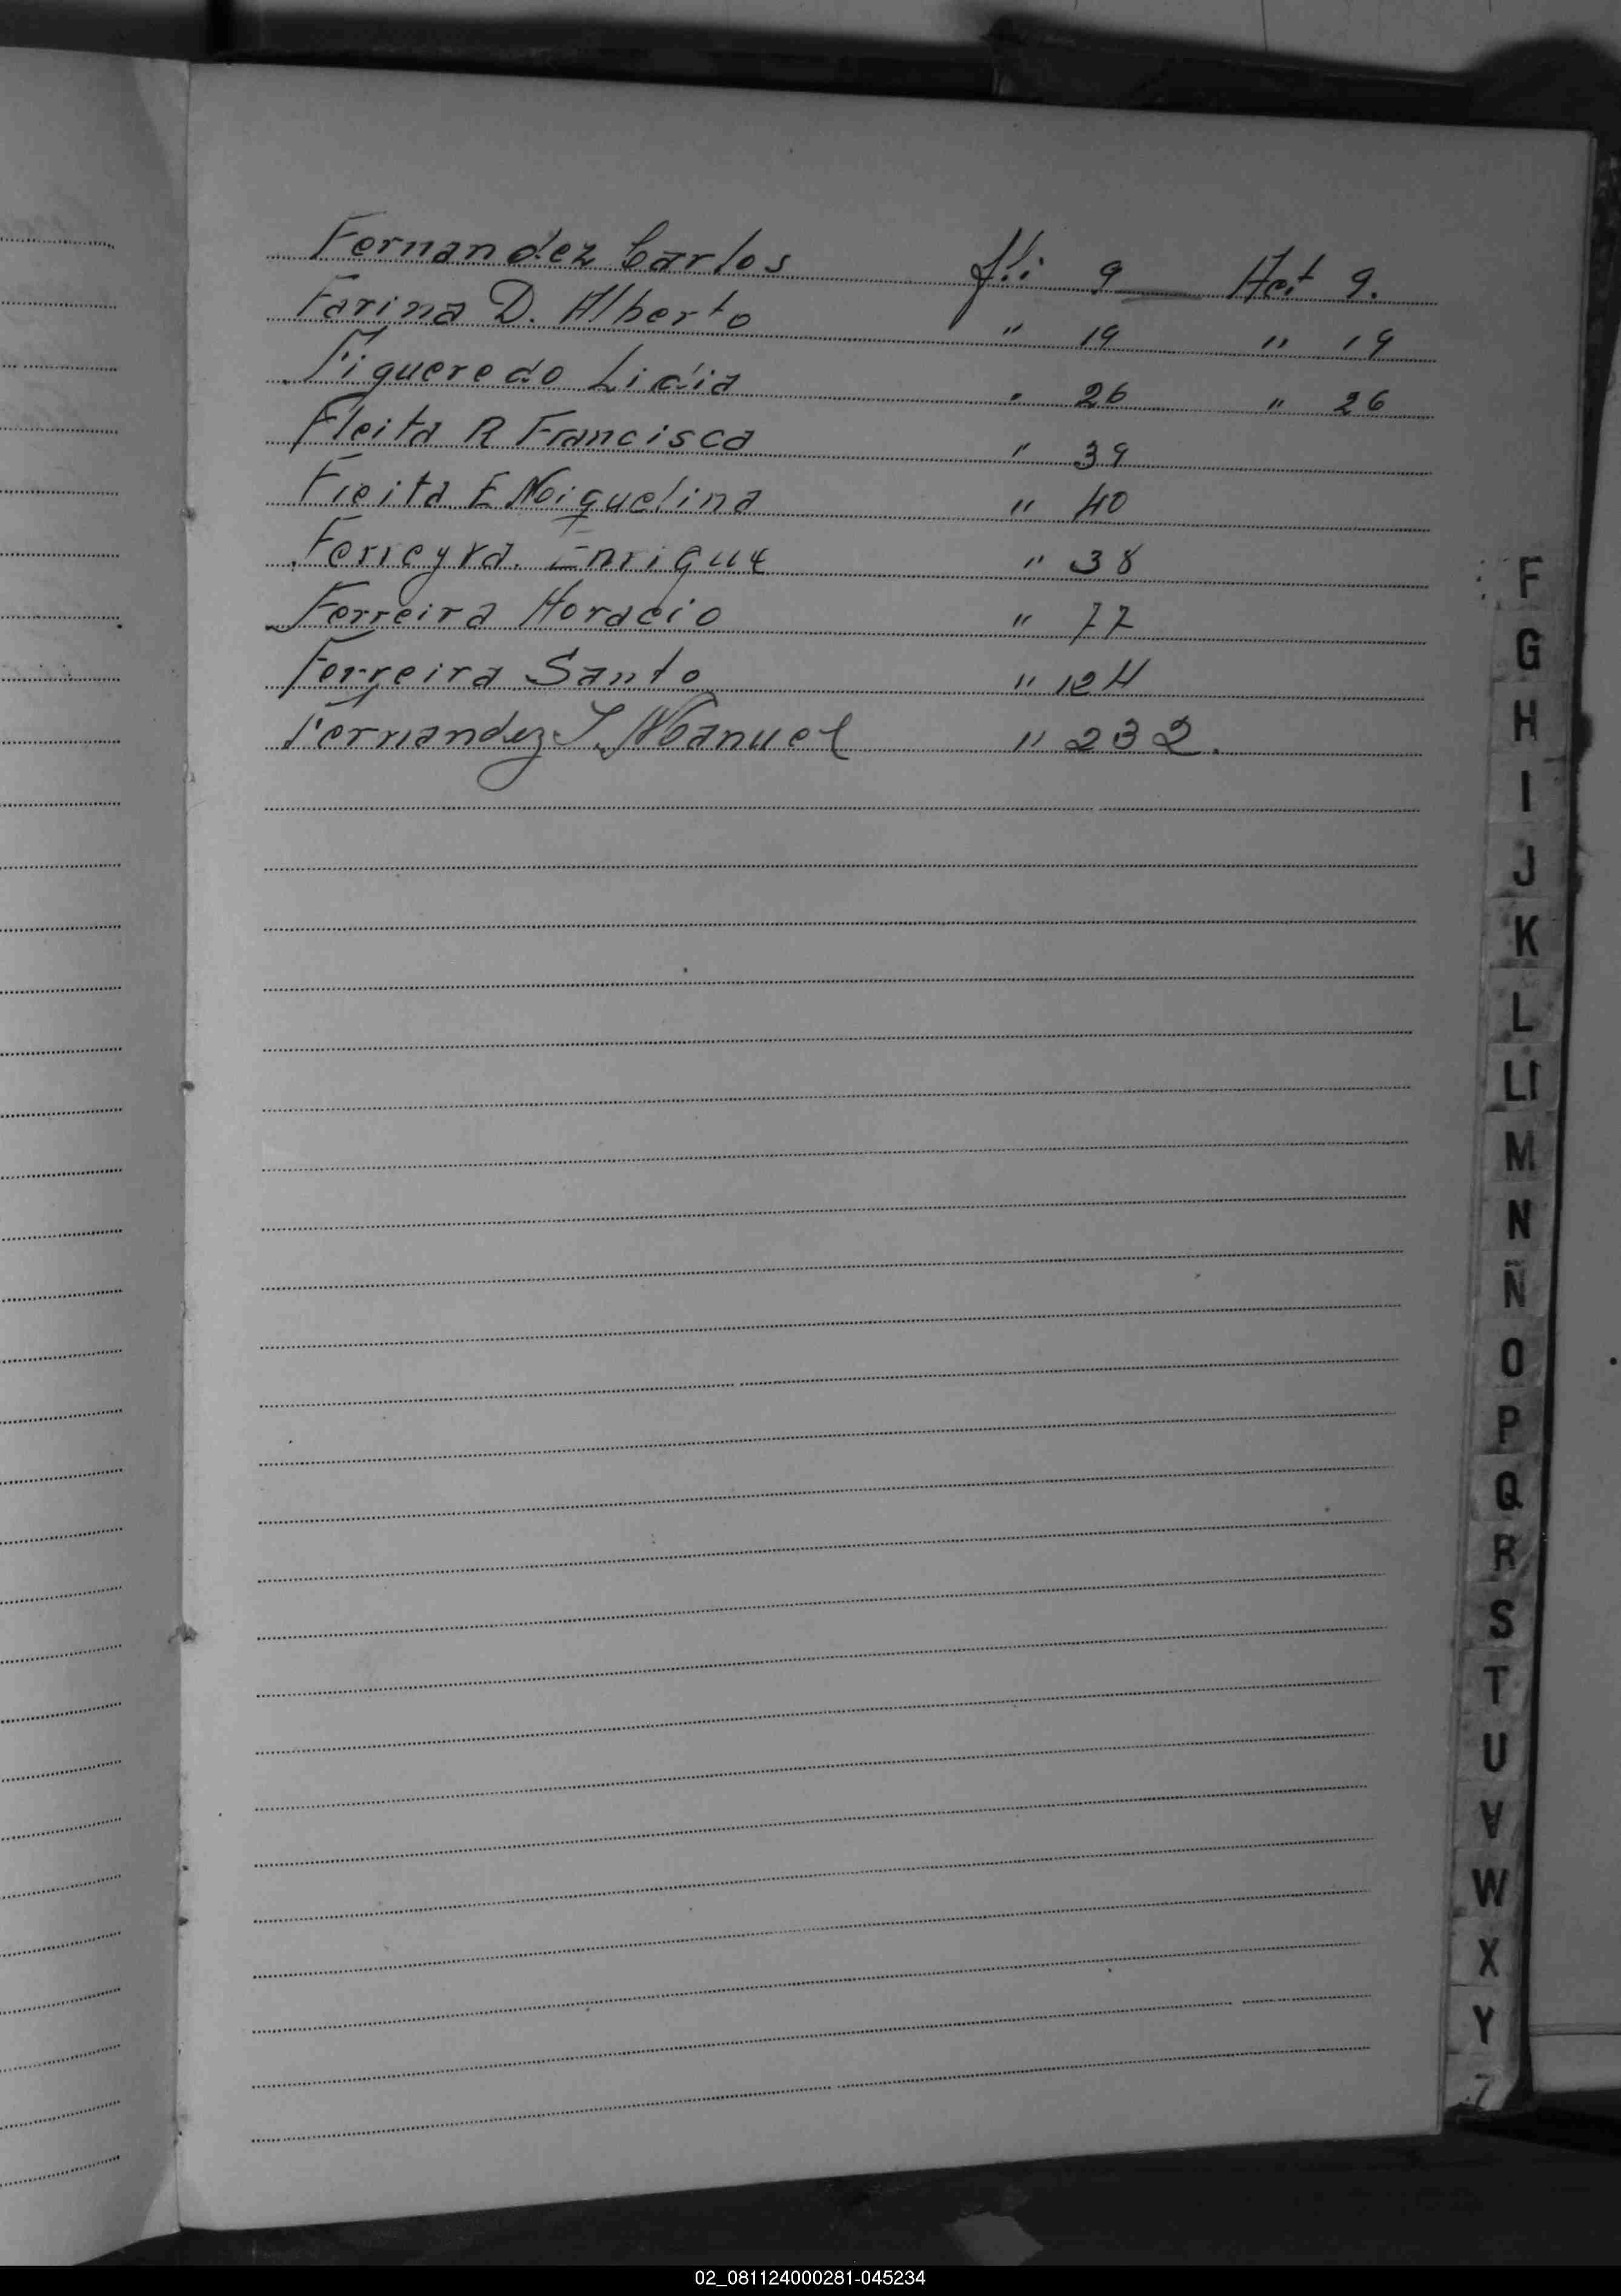 Fernandez Carlos fli: 9 — Act 9.
Farina D. Alberto " 19 " 19
Figueredo Licia " 26 " 26
Fleita R Francisca " 39
Fleita E Miguelina " 40
Ferreyra. Enrique " 38
Ferreira Horacio " 77
Ferreira Santo " 124
Fernandez J. Manuel " 232.
F
G
H
I
J
K
L
Ll
M
N
Ñ
O
P
Q
R
S
T
U
V
W
X
Y
Z
02_081124000281-045234